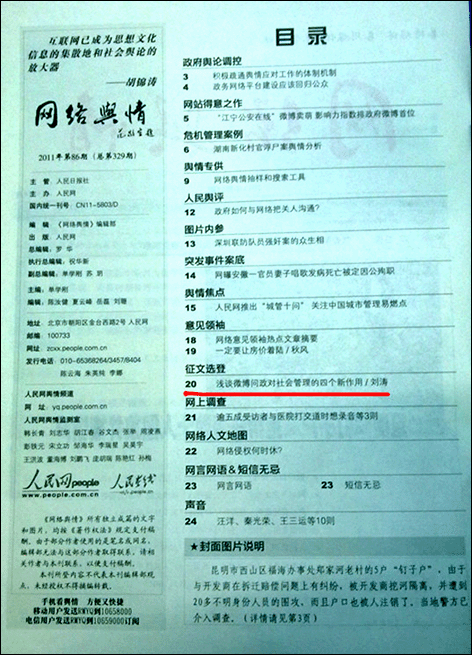 互联网已成为思想文化
信息的集散地和社会舆论的
放大器
——胡锦涛
网络舆情
2011年第86期(总第329期)
主 管 人民日报社
主 办 人民网
国内统一刊号 CN11-5803/D
编 辑 《网络舆情》编辑部
出 版 人民网
总 编 辑 罗 华
执行总编辑 祝华新
副总编辑 单学刚 苏 玥
主 编 单学刚
编 辑 陈汝健 夏云峰 岳磊 刘璐
地址 北京市朝阳区金台西路2号
邮编 100733
网址 zcxx.people.com.cn
发行电话 65363860/65368264/3457/8404
陈云海 朱英纯 李娜
人民网舆情频道
网 址 yq.people.com.cn
人民网舆情监测室
韩长青 刘志华 胡江春 谷文杰 张举 周凌燕
彭铁元 宋立功 邹海华 李瑞星 吴英宇
王洪波 董海博 刘鹏飞 庞胡瑞 陈艳红 孙梅
人民网 people.com.cn
人民在线
《网络舆情》所有独立成篇的文字
和图片,均按《著作权法》规定支付稿
酬。由于部分作者使用的是笔名或网名,
编辑部无法与这部分作者取得联系。请
相关作者与本刊联系,以便支付稿酬。
本刊所登内容不代表本刊编辑部观
点,未经授权不得摘编转载。
手机看舆情 方便又快捷
移动用户发送RMYQ到10658000
电信用户发送RMYQ到10659000订阅
目录
政府舆论调控
3 积极疏通舆情应对工作的体制机制
4 政务网络平台建设应该回归公众
网站得意之作
5 “江宁公安在线”微博卖萌 影响力指数跻政府微博首位
危机管理案例
6 湖南新化村官浮尸案舆情分析
舆情专供
9 网络舆情抽样和搜索工具
人民舆评
12 政府如何与网络把关人沟通?
图片内参
13 深圳联防队员强奸案的众生相
突发事件案底
14 网曝安徽一官员妻子唱歌发病死亡被定因公殉职
舆情焦点
15 人民网推出“城管十问” 关注中国城市管理易燃点
意见领袖
18 网络意见领袖热点文章摘要
19 一定要让房价着陆/秋风
征文选登
20 浅谈微博问政对社会管理的四个新作用/刘涛
网上调查
21 逾五成受访者与医院打交道时想录音等3则
网络人文地图
22 网络侵权何时休?
网言网语&短信无忌
23 网言网语 23 短信无忌
声音
24 汪洋、秦光荣、王三运等10则
★封面图片说明
昆明市西山区福海办事处郑家河老村的5户“钉子户”,由于
与开发商在拆迁赔偿问题上有纠纷,被开发商挖河隔离,并遭到
20多不明身份人员的围攻,而且户口也被人注销了,当地警方已
介入调查。(详情请见第3页)